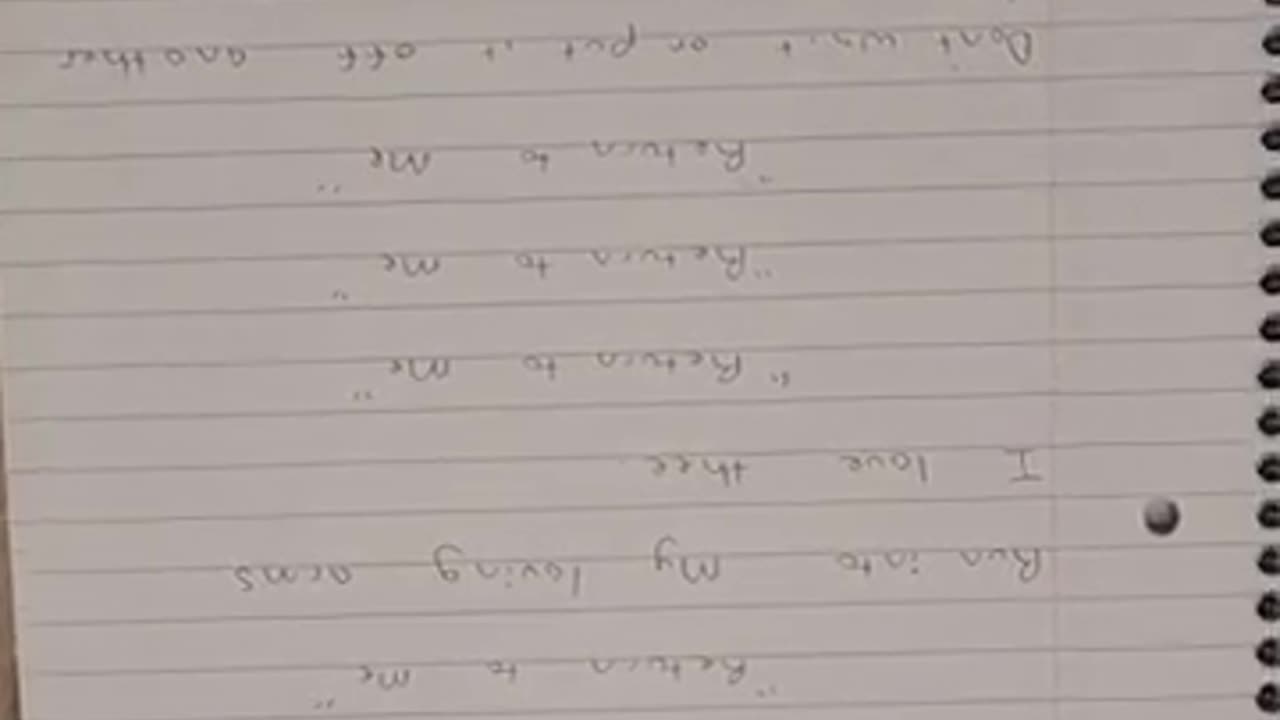 "Return to Me"
Run into My loving arms
I love thee.
"Return to Me"
"Return to Me"
"Return to Me"
Don't wait or put it off another